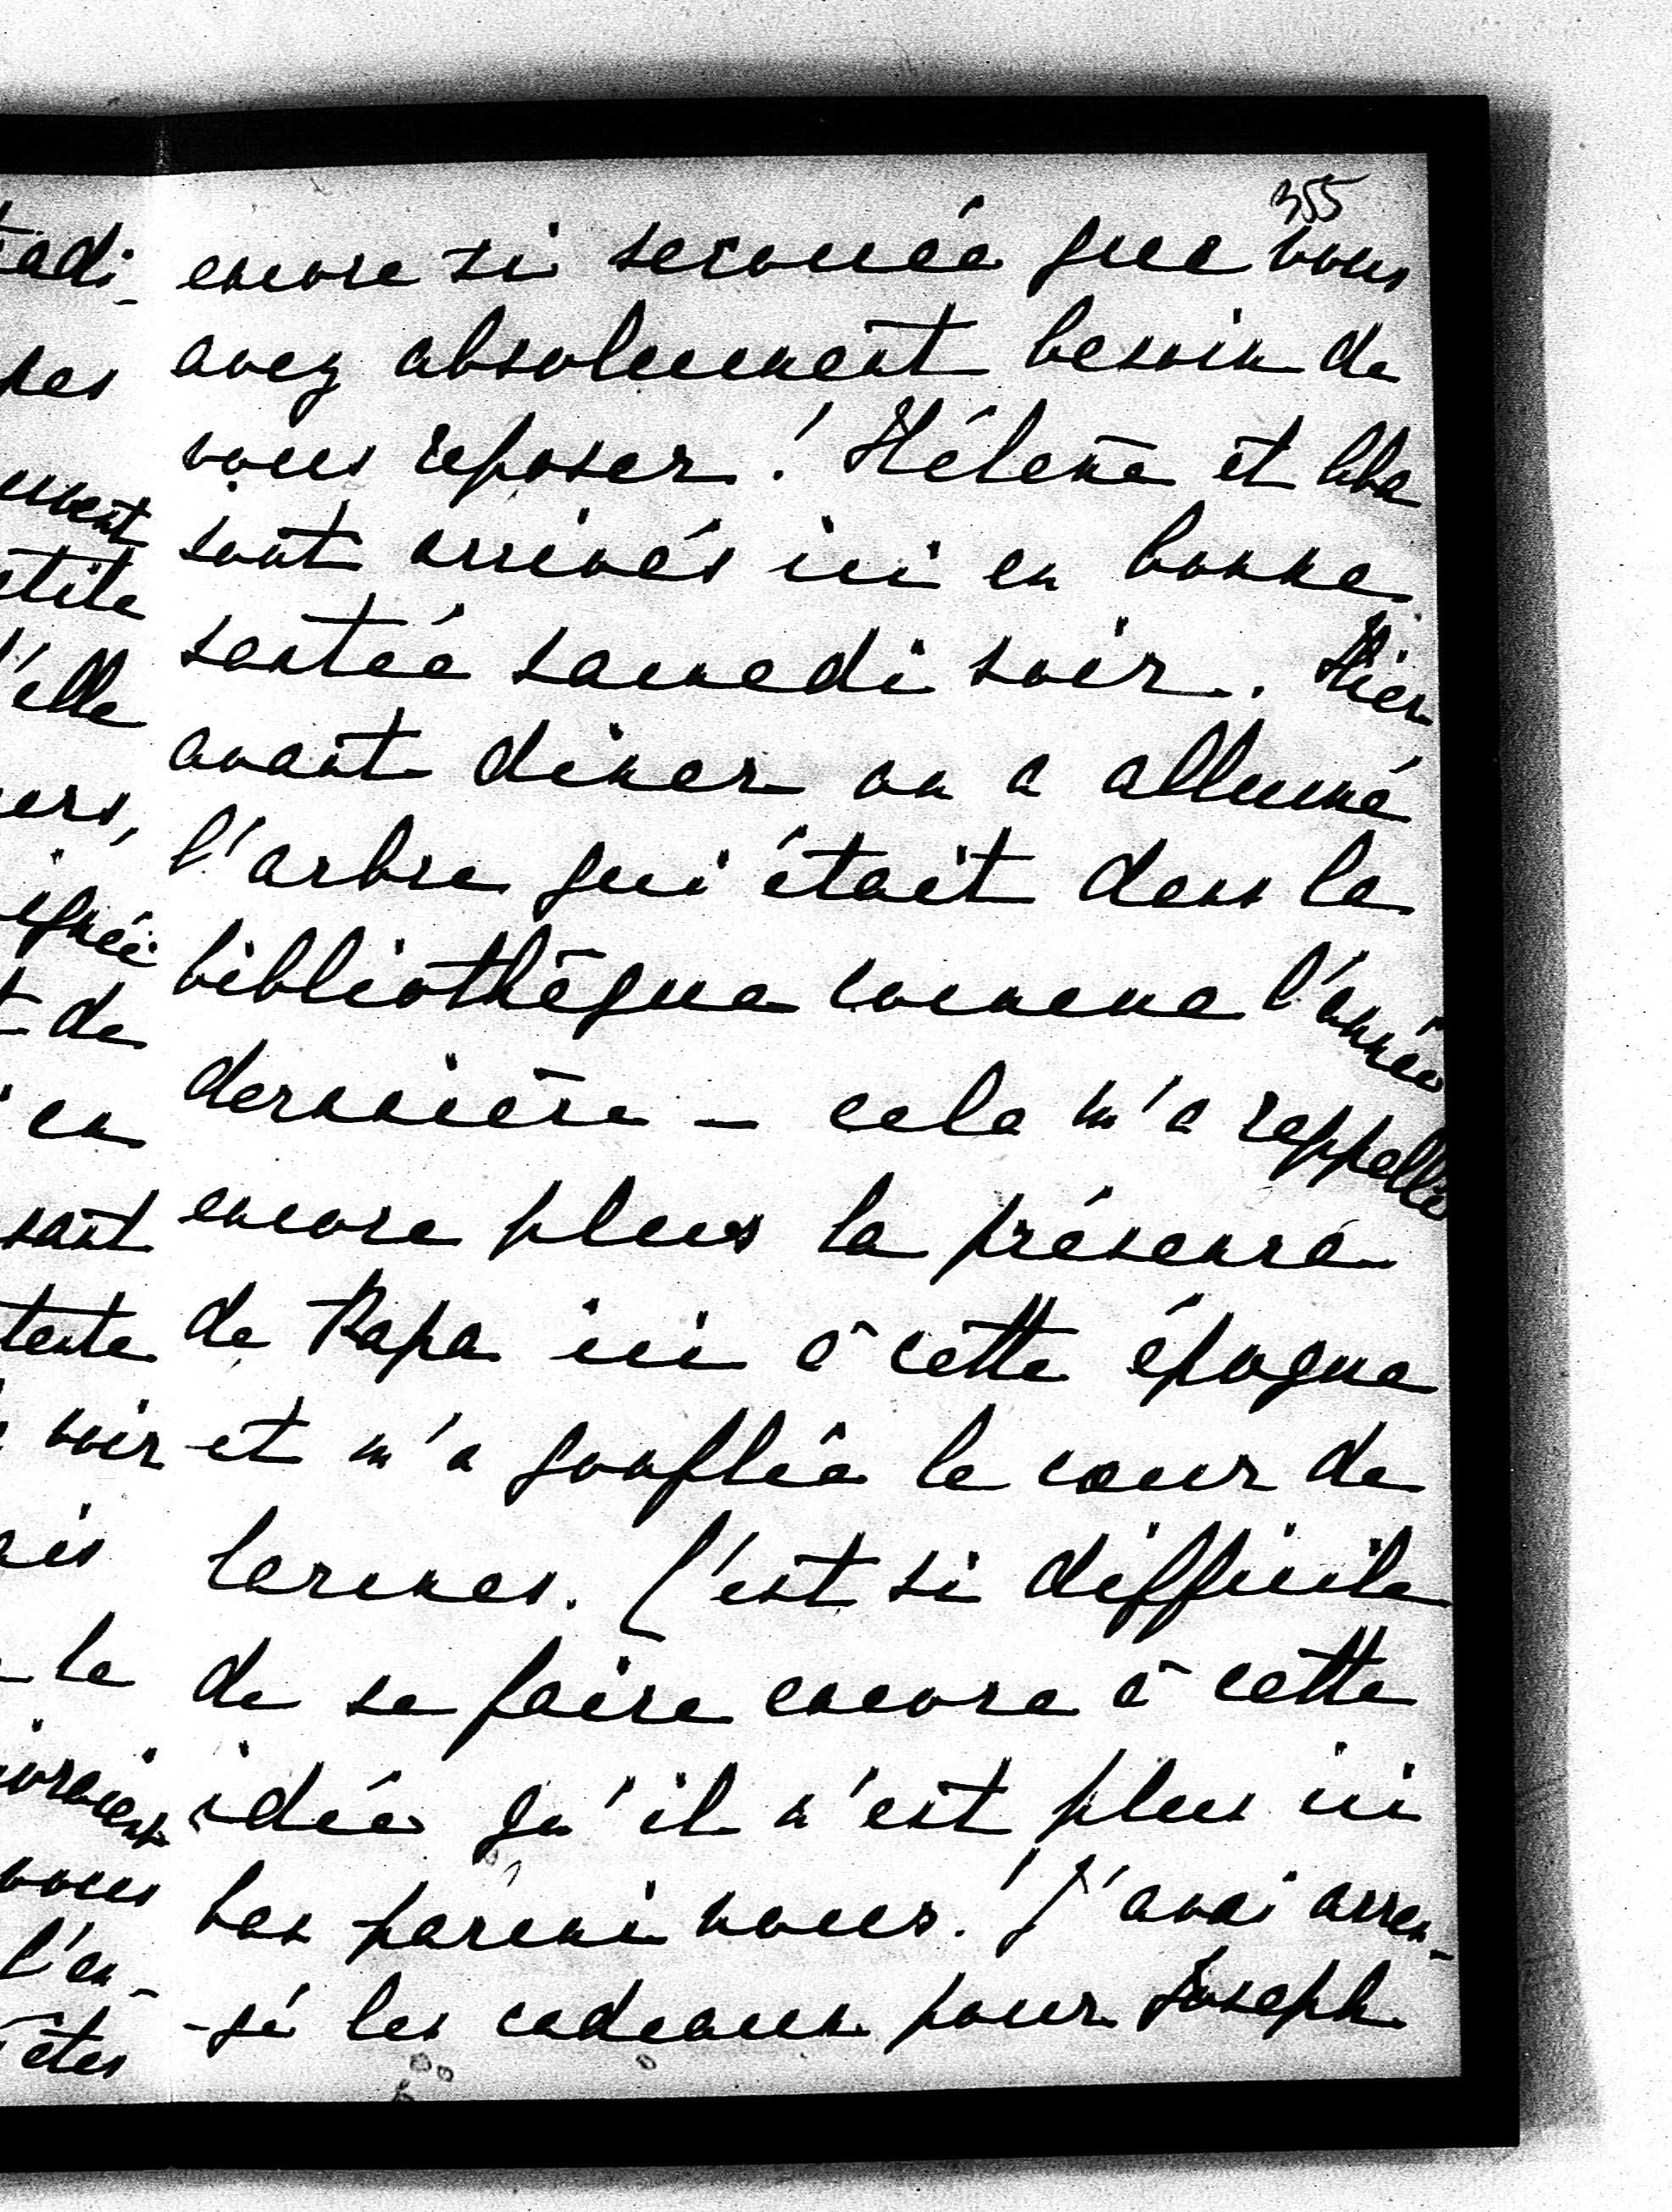 355
encore si secouée que vous
avez absolument besoin de
vous reposer! Hélène et
sont arrivés ici en bonne
santée samedi soir. Hier
avant diner on a allumé
l'arbre qui était dans la
bibliothèque comme l'année
dernière — cela m'a rappellé
encore plus la présence
de Papa ici à cette époque
et m'a gonflée le cœur de
larmes. C'est si difficile
de se faire encore à cette
idée qu'il n'est plus ici
bas parmi nous! J'avai arran-
-gé les cadeaux pour Joseph